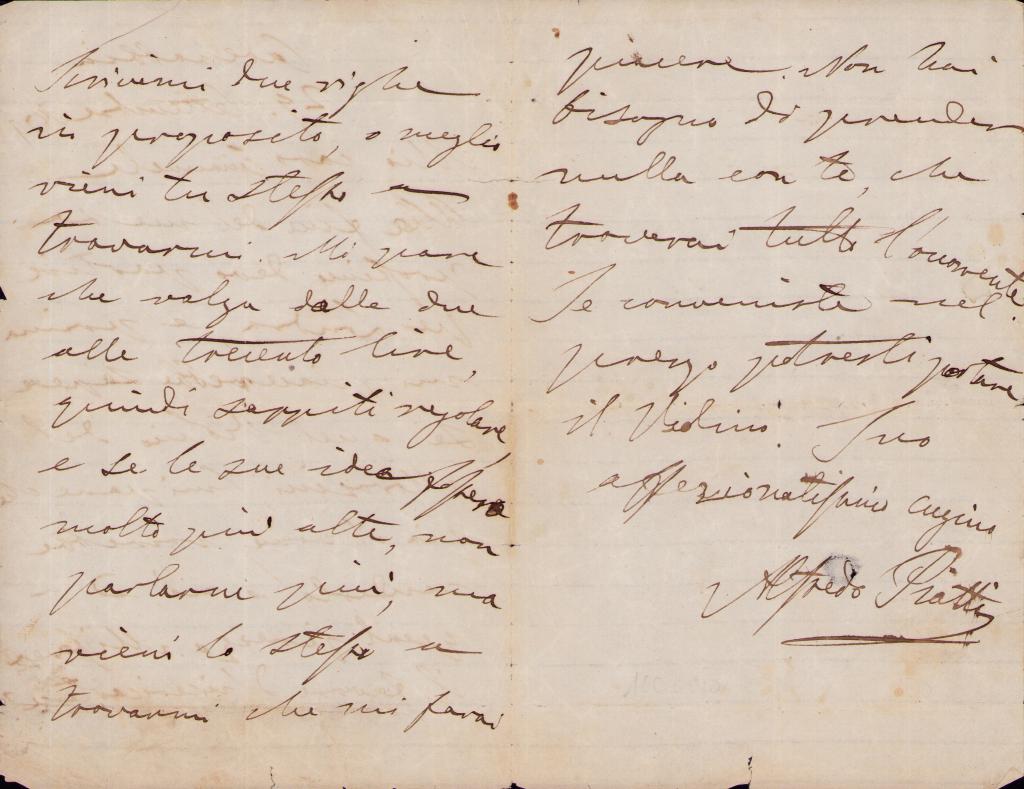 Scrivimi due righe
in proposito, o meglio
vieni tu stesso a
trovarmi. Mi pare
che valga dalle due
alle trecento lire,
quindi sappiti regolare
e se le sue idee fossero
molto più alte, non
parlarne più, ma
vieni lo stesso a
trovarmi che mi farai
piacere. Non hai
bisogno di prender
nulla con te, che
troverai tutto l'occorrente
Se conveniste nel
prezzo potresti portare
il Violino. Tuo
affezionatissimo cugino
Alfredo Piatti